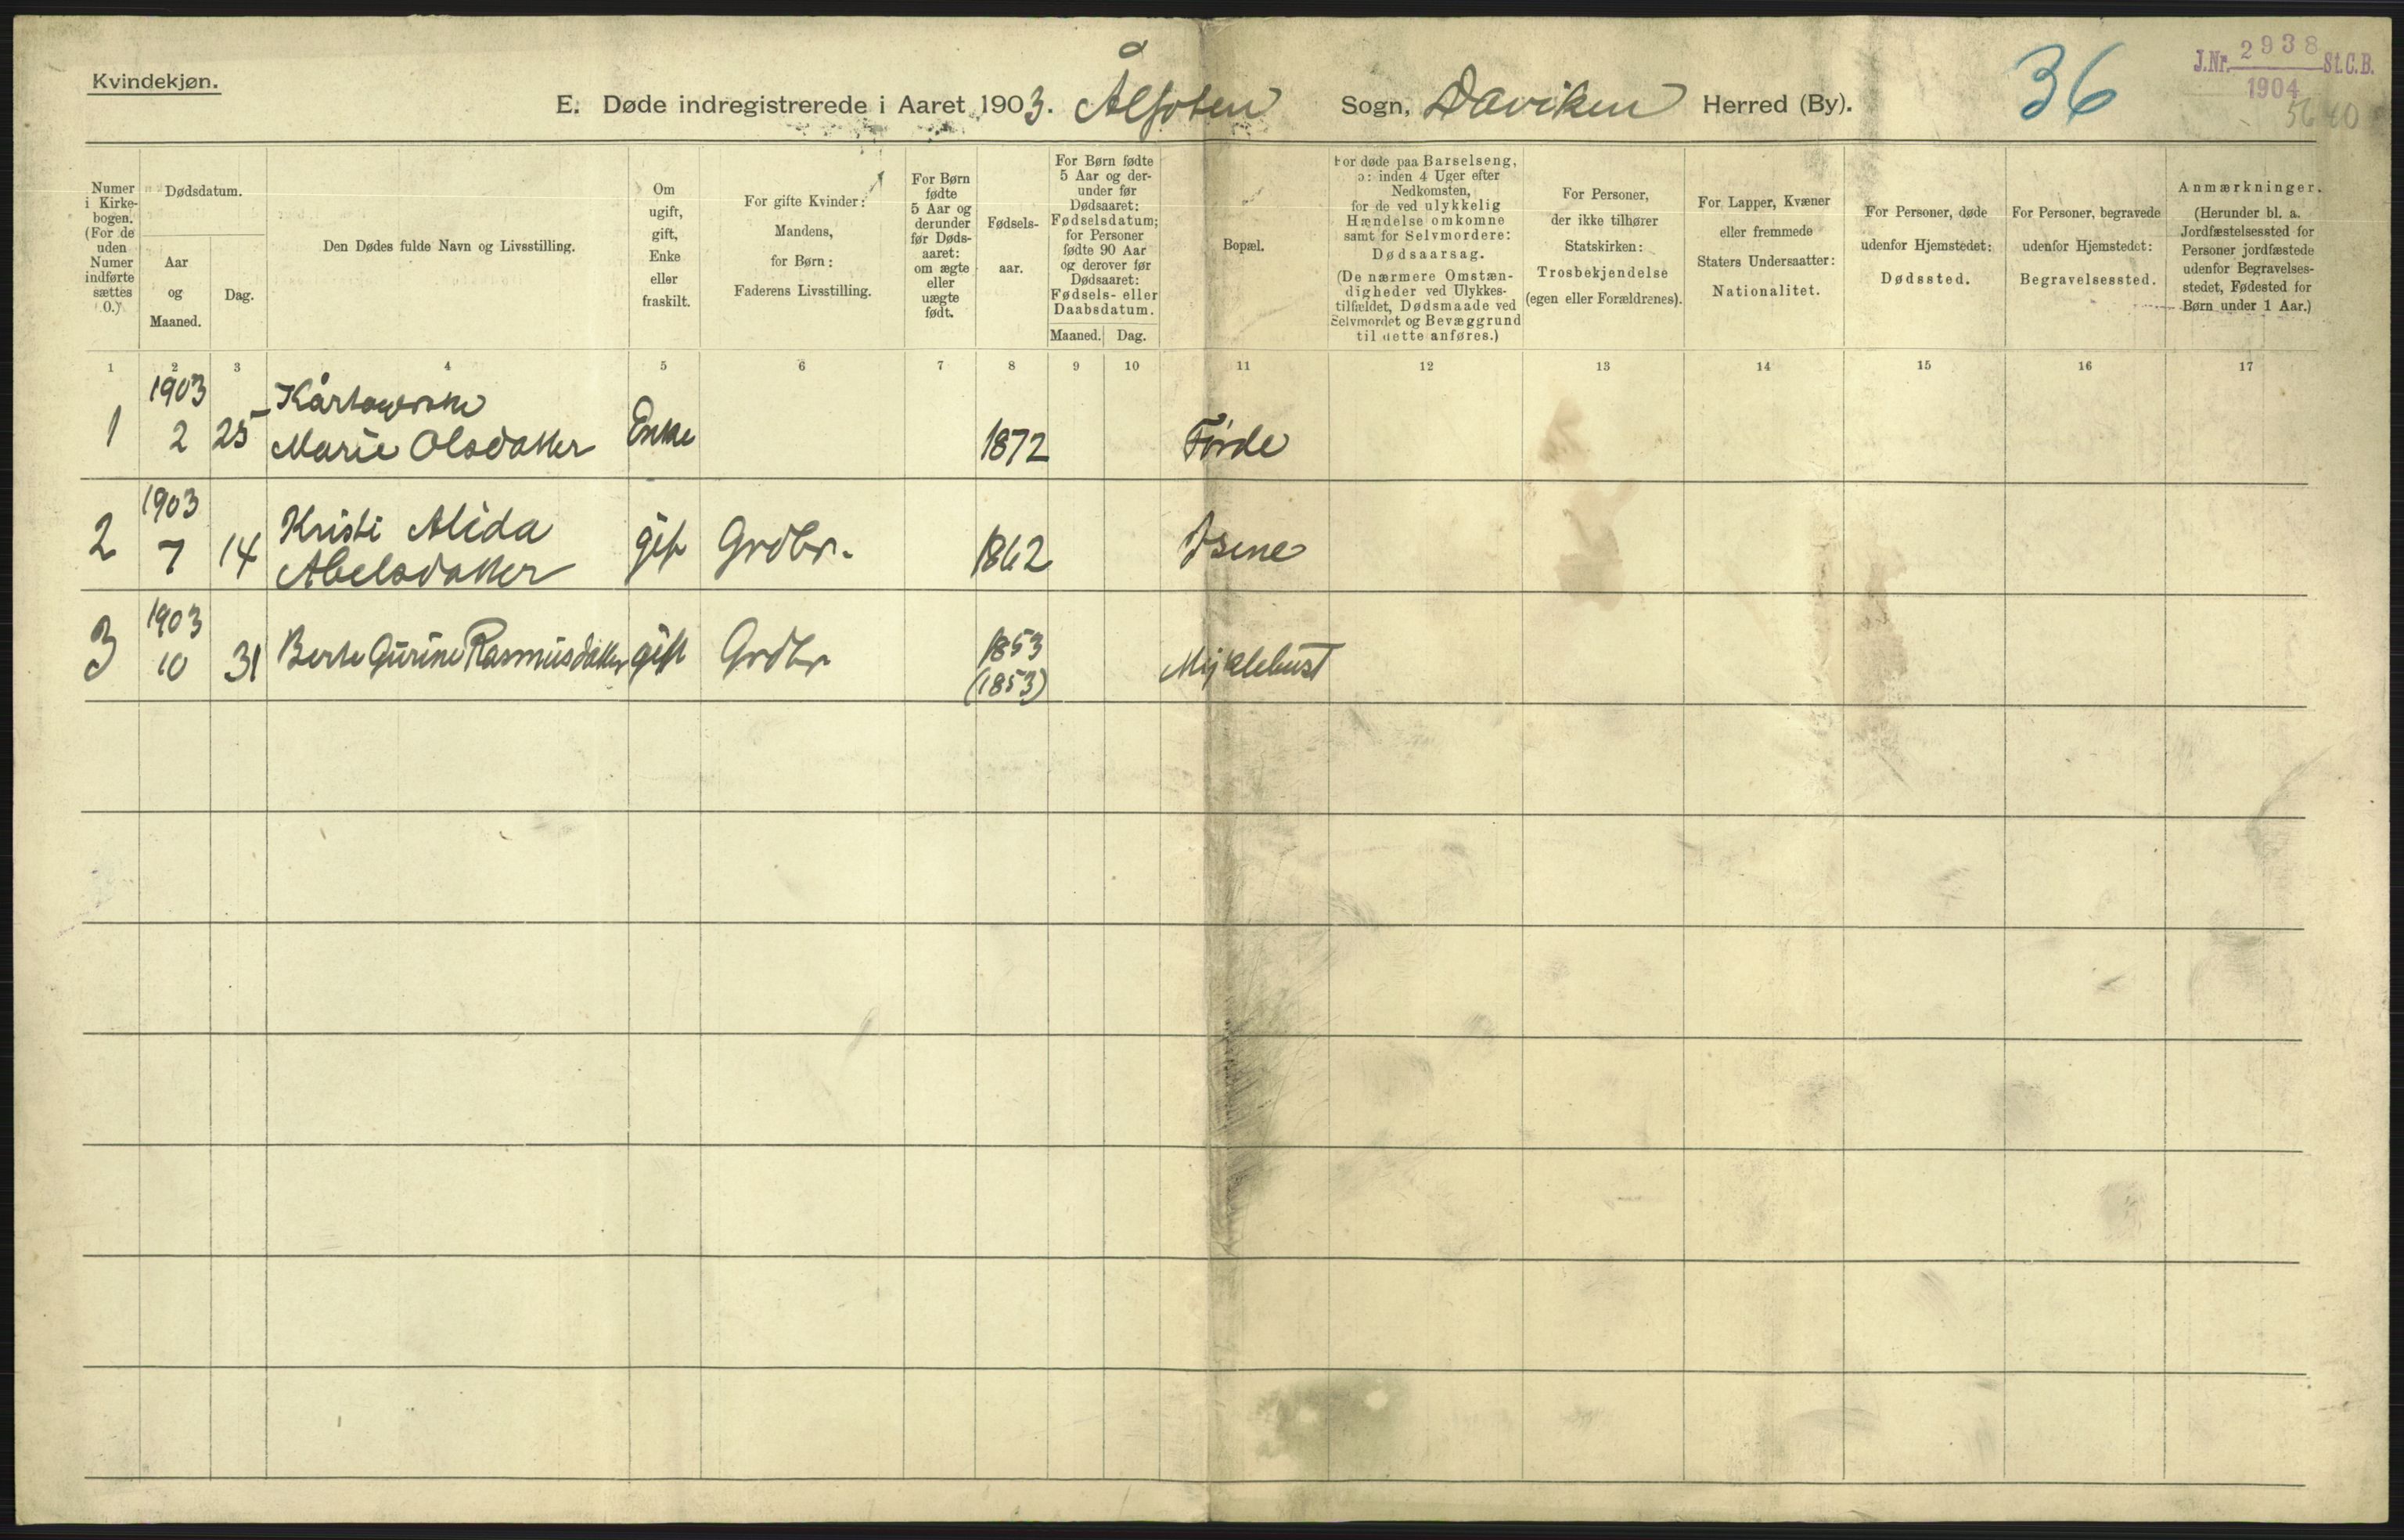 Kvindekjøn.
E. Døde indregistrerede i Aaret 1903. Ålfoten Sogn, Daviken Herred (By).
36
J.Nr. 2938 St.C.B.
1904
Numer i Kirke-bogen. (For de uden Numer indførte sættes 0.)
Dødsdatum.
Aar og Maaned.
Dag.
Den Dødes fulde Navn og Livsstilling.
Om ugift, gift, Enke eller fraskilt.
For gifte Kvinder: Mandens, for Børn: Faderens Livsstilling.
For Børn fødte 5 Aar og derunder før Døds-aaret: om ægte eller uægte født.
Fødsels-aar.
For Børn fødte 5 Aar og der-under før Dødsaaret: Fødselsdatum; for Personer fødte 90 Aar og derover før Dødsaaret: Fødsels- eller Daabsdatum.
Maaned. Dag.
Bopæl.
For døde paa Barselseng, ɔ: inden 4 Uger efter Nedkomsten, for de ved ulykkelig Hændelse omkomne samt for Selvmordere: Dødsaarsag.
(De nærmere Omstæn-digheder ved Ulykkes-tilfældet, Dødsmaade ved Selvmordet og Bevæggrund til dette anføres.)
For Personer, der ikke tilhører Statskirken: Trosbekjendelse (egen eller Forældrenes).
For Lapper, Kvæner eller fremmede Staters Undersaatter: Nationalitet.
For Personer, døde udenfor Hjemstedet: Dødssted.
For Personer, begravede udenfor Hjemstedet: Begravelsessted.
Anmærkninger.
(Herunder bl. a. Jordfæstelsessted for Personer jordfæstede udenfor Begravelses-stedet, Fødested for Børn under 1 Aar.)
1 2 3 4 5 6 7 8 9 10 11 12 13 14 15 16 17
1903
1 2 25 Marie Olsdatter Enke 1872 Førde
1903 Kristi Alida
2 7 14 Abelsdatter gift Grdbr. 1862 Isene
1903 1853
3 10 31 Berte Gurine Rasmusdatter gift Grdbr Myklebust
(1853)